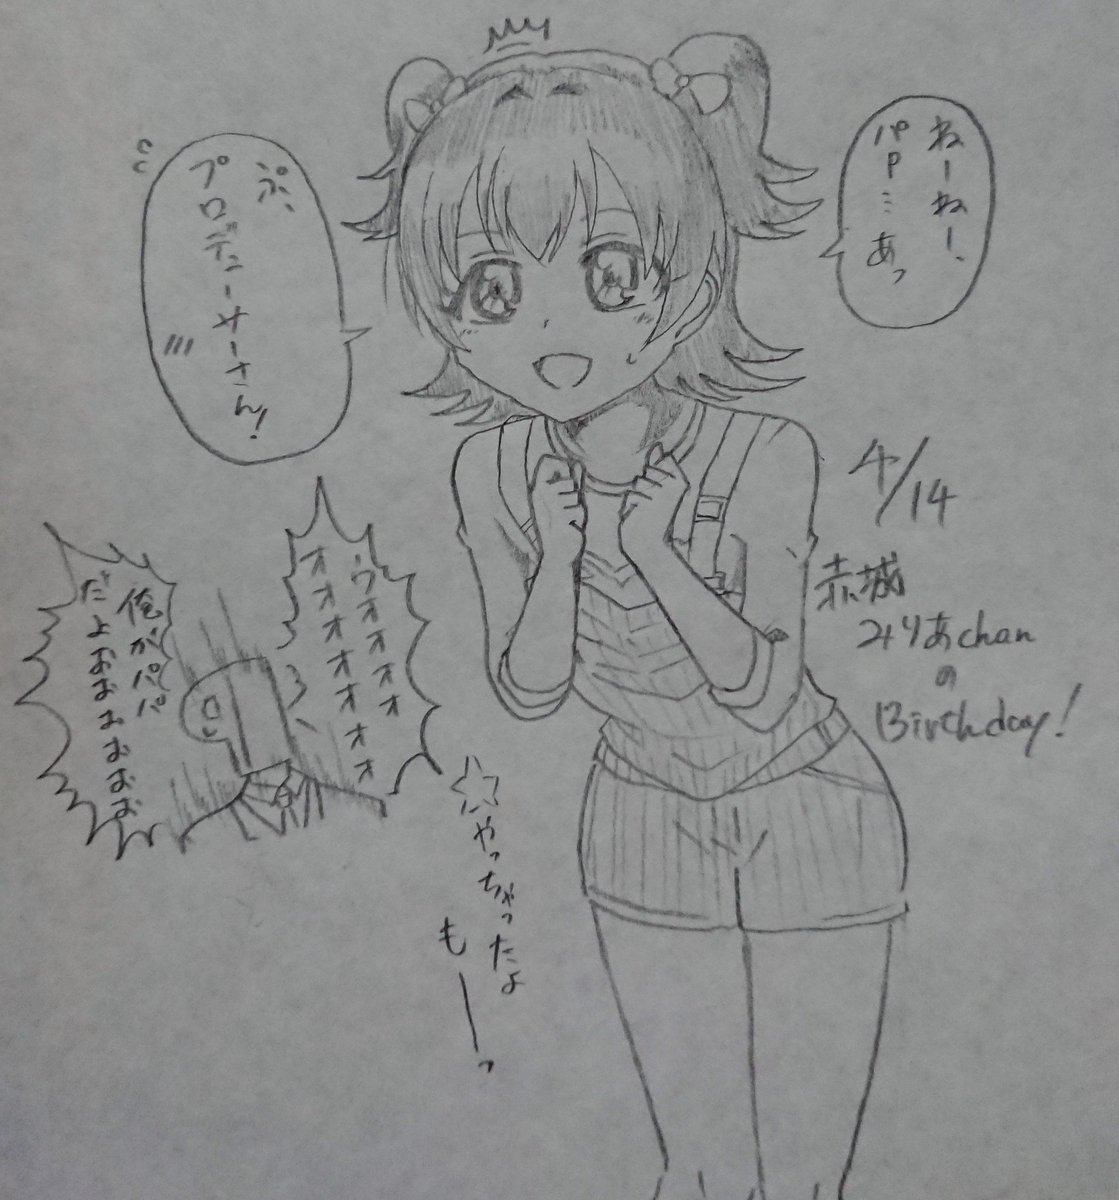 ねーねー、
パP…あっ
ぷ、
プロデューサーさん!
ウオオオオオ
オオオオオオォォ
俺がパパ
だよおおおおおお
☆やっちゃったよ
もーっ
4/14
赤城
みりあchan
の
Birthday!